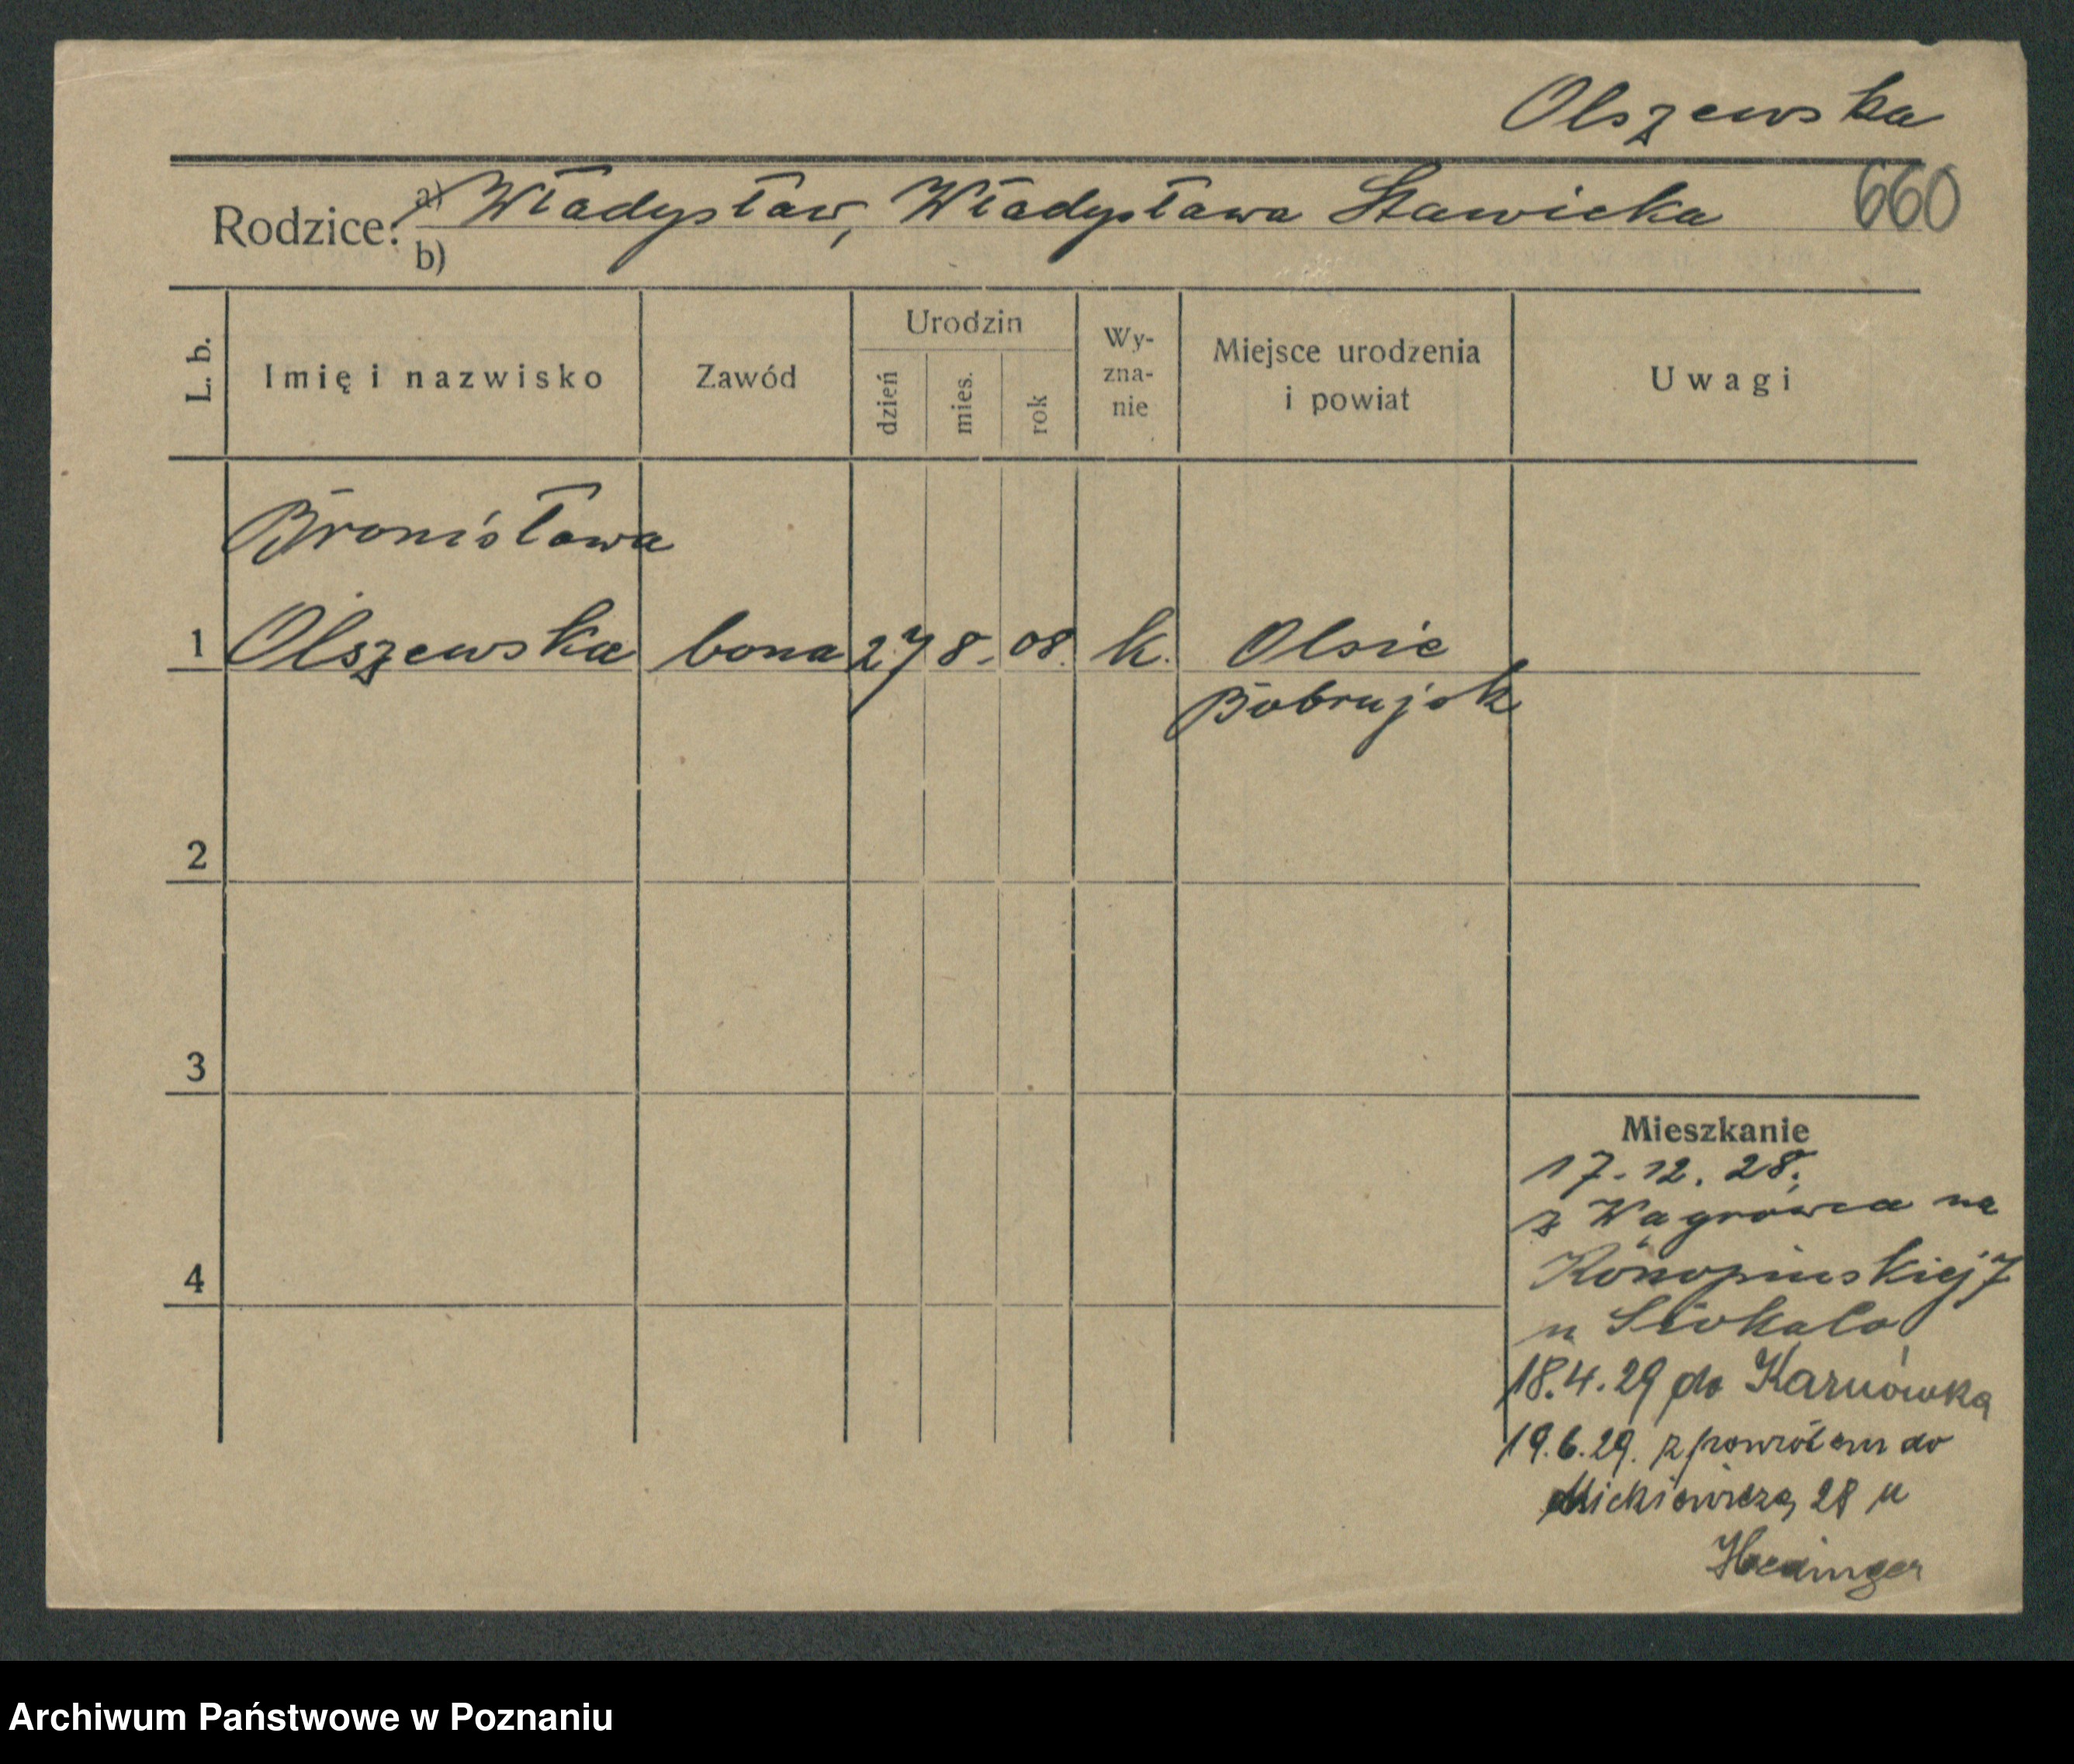 Olszewska
660
Rodzice: a) Władysław, Władysława Stawicka
b)
L. b.
Imię i nazwisko
Zawód
Urodzin
dzień
mies.
rok
Wy-
zna-
nie
Miejsce urodzenia
i powiat
Uwagi
Bronisława
1 Olszewska bona 27 8. 08. k. Olsie
Bobrujsk
2
3
4
Mieszkanie
17. 12. 28.
z Wągrówca na
Konopinskiej 7
u
18.4.29 do Karnówka
19.6.29. z powrótem do
Mickiewicza 28 u
Archiwum Państwowe w Poznaniu